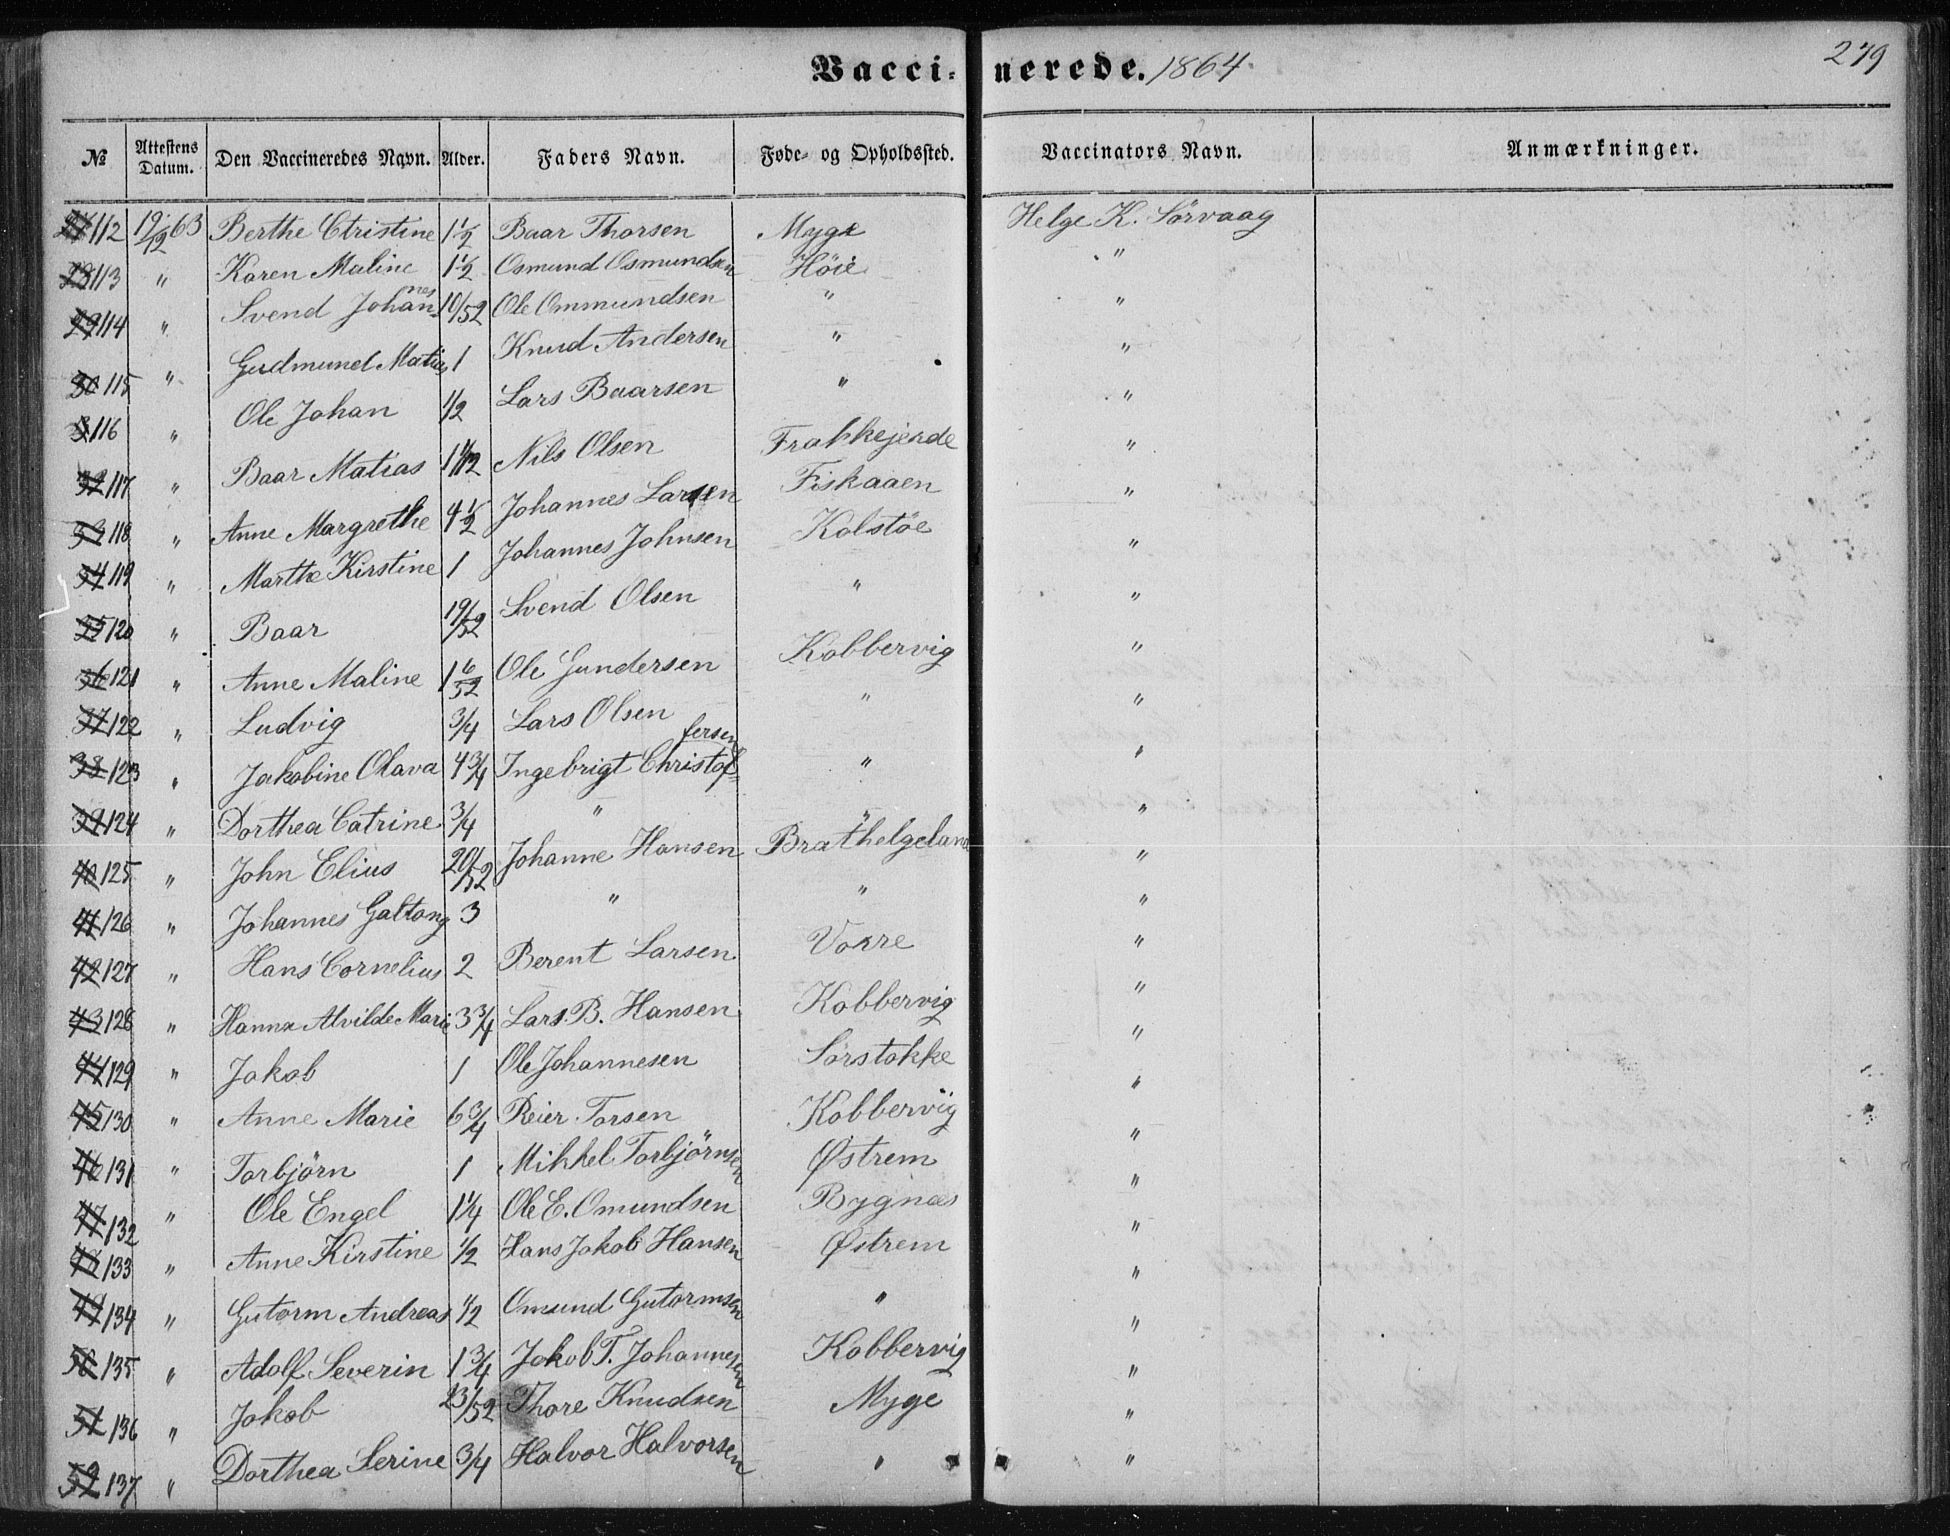 Vaccinerede. 1864 279
№ Attestens Datum. Den Vaccineredes Navn. Alder. Faders Navn. Føde- og Opholdssted. Vaccinators Navn. Anmærkninger.
112 19/12 63 Berthe Christine 1 1/2 Baar Thorsen Myge Helge K. Sörvaag
28 113 " Karen Maline 1 1/2 Osmund Osmundsen Höie "
29 114 " Svend Johannes 10/52 Ole Ommundsen " "
30 115 " Gudmund Matias 1 Knud Andersen " "
116 " Ole Johan 1/2 Lars Baarsen " "
32 117 " Baar Matias 1 Nils Olsen "
33 118 " Anne Margrethe 4 1/2 Johannes Larsen Fiskaaen "
34 119 " Marthe Kirstine 1 Johannes Johnsen Kolstöe "
35 120 " Baar 19/52 Svend Olsen " "
36 121 " Anne Maline 1 6/52 Ole Gundersen Kobbervig "
37 122 " Ludvig 3/4 Lars Olsen " "
38 123 " Jakobine Olava 4 3/4 Ingebrigt Christoffersen " "
39 124 " Dorthea Catrine 3/4 " "
40 125 " John Elius 20/52 Johanne Hansen Brathelgeland "
41 126 " Johannes Galtong 3 " " "
42 127 " Hans Cornelius 2 Berent Larsen Vorre "
43 128 " Hanna Alvilde Marie 3 3/4 Lars B. Hansen Kobbervig "
44 129 " Jakob 1 Ole Johannesen Sörstokke "
45 130 " Anne Marie 6 3/4 Reier Torsen Kobbervig "
46 131 " Torbjörn 1 Mikkel Torbjörnsen Østrem "
47 132 " Ole Engel 1 1/4 Ole E. Omundsen Bygnæs "
48 133 " Anne Kirstine 1/2 Hans Jakob Hansen Østrem "
49 134 " Gutorm Andreas 1/2 Omund Gutormsen " "
50 135 " Adolf Severin 1 3/4 Jakob T. Johannesen Kobbervig "
51 136 " Jakob 23/52 Thore Knudsen Myge "
52 137 " Dorthea Serine 3/4 Halvor Halvorsen " "